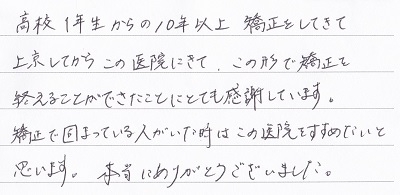 高校1年生からの10年以上 矯正をしてきて
上京してから この医院にきて、この形で矯正を
終えることができたことにとても感謝しています。
矯正で困まっている人がいた時はこの医院をすすめたいと
思います。 本当にありがとうございました。